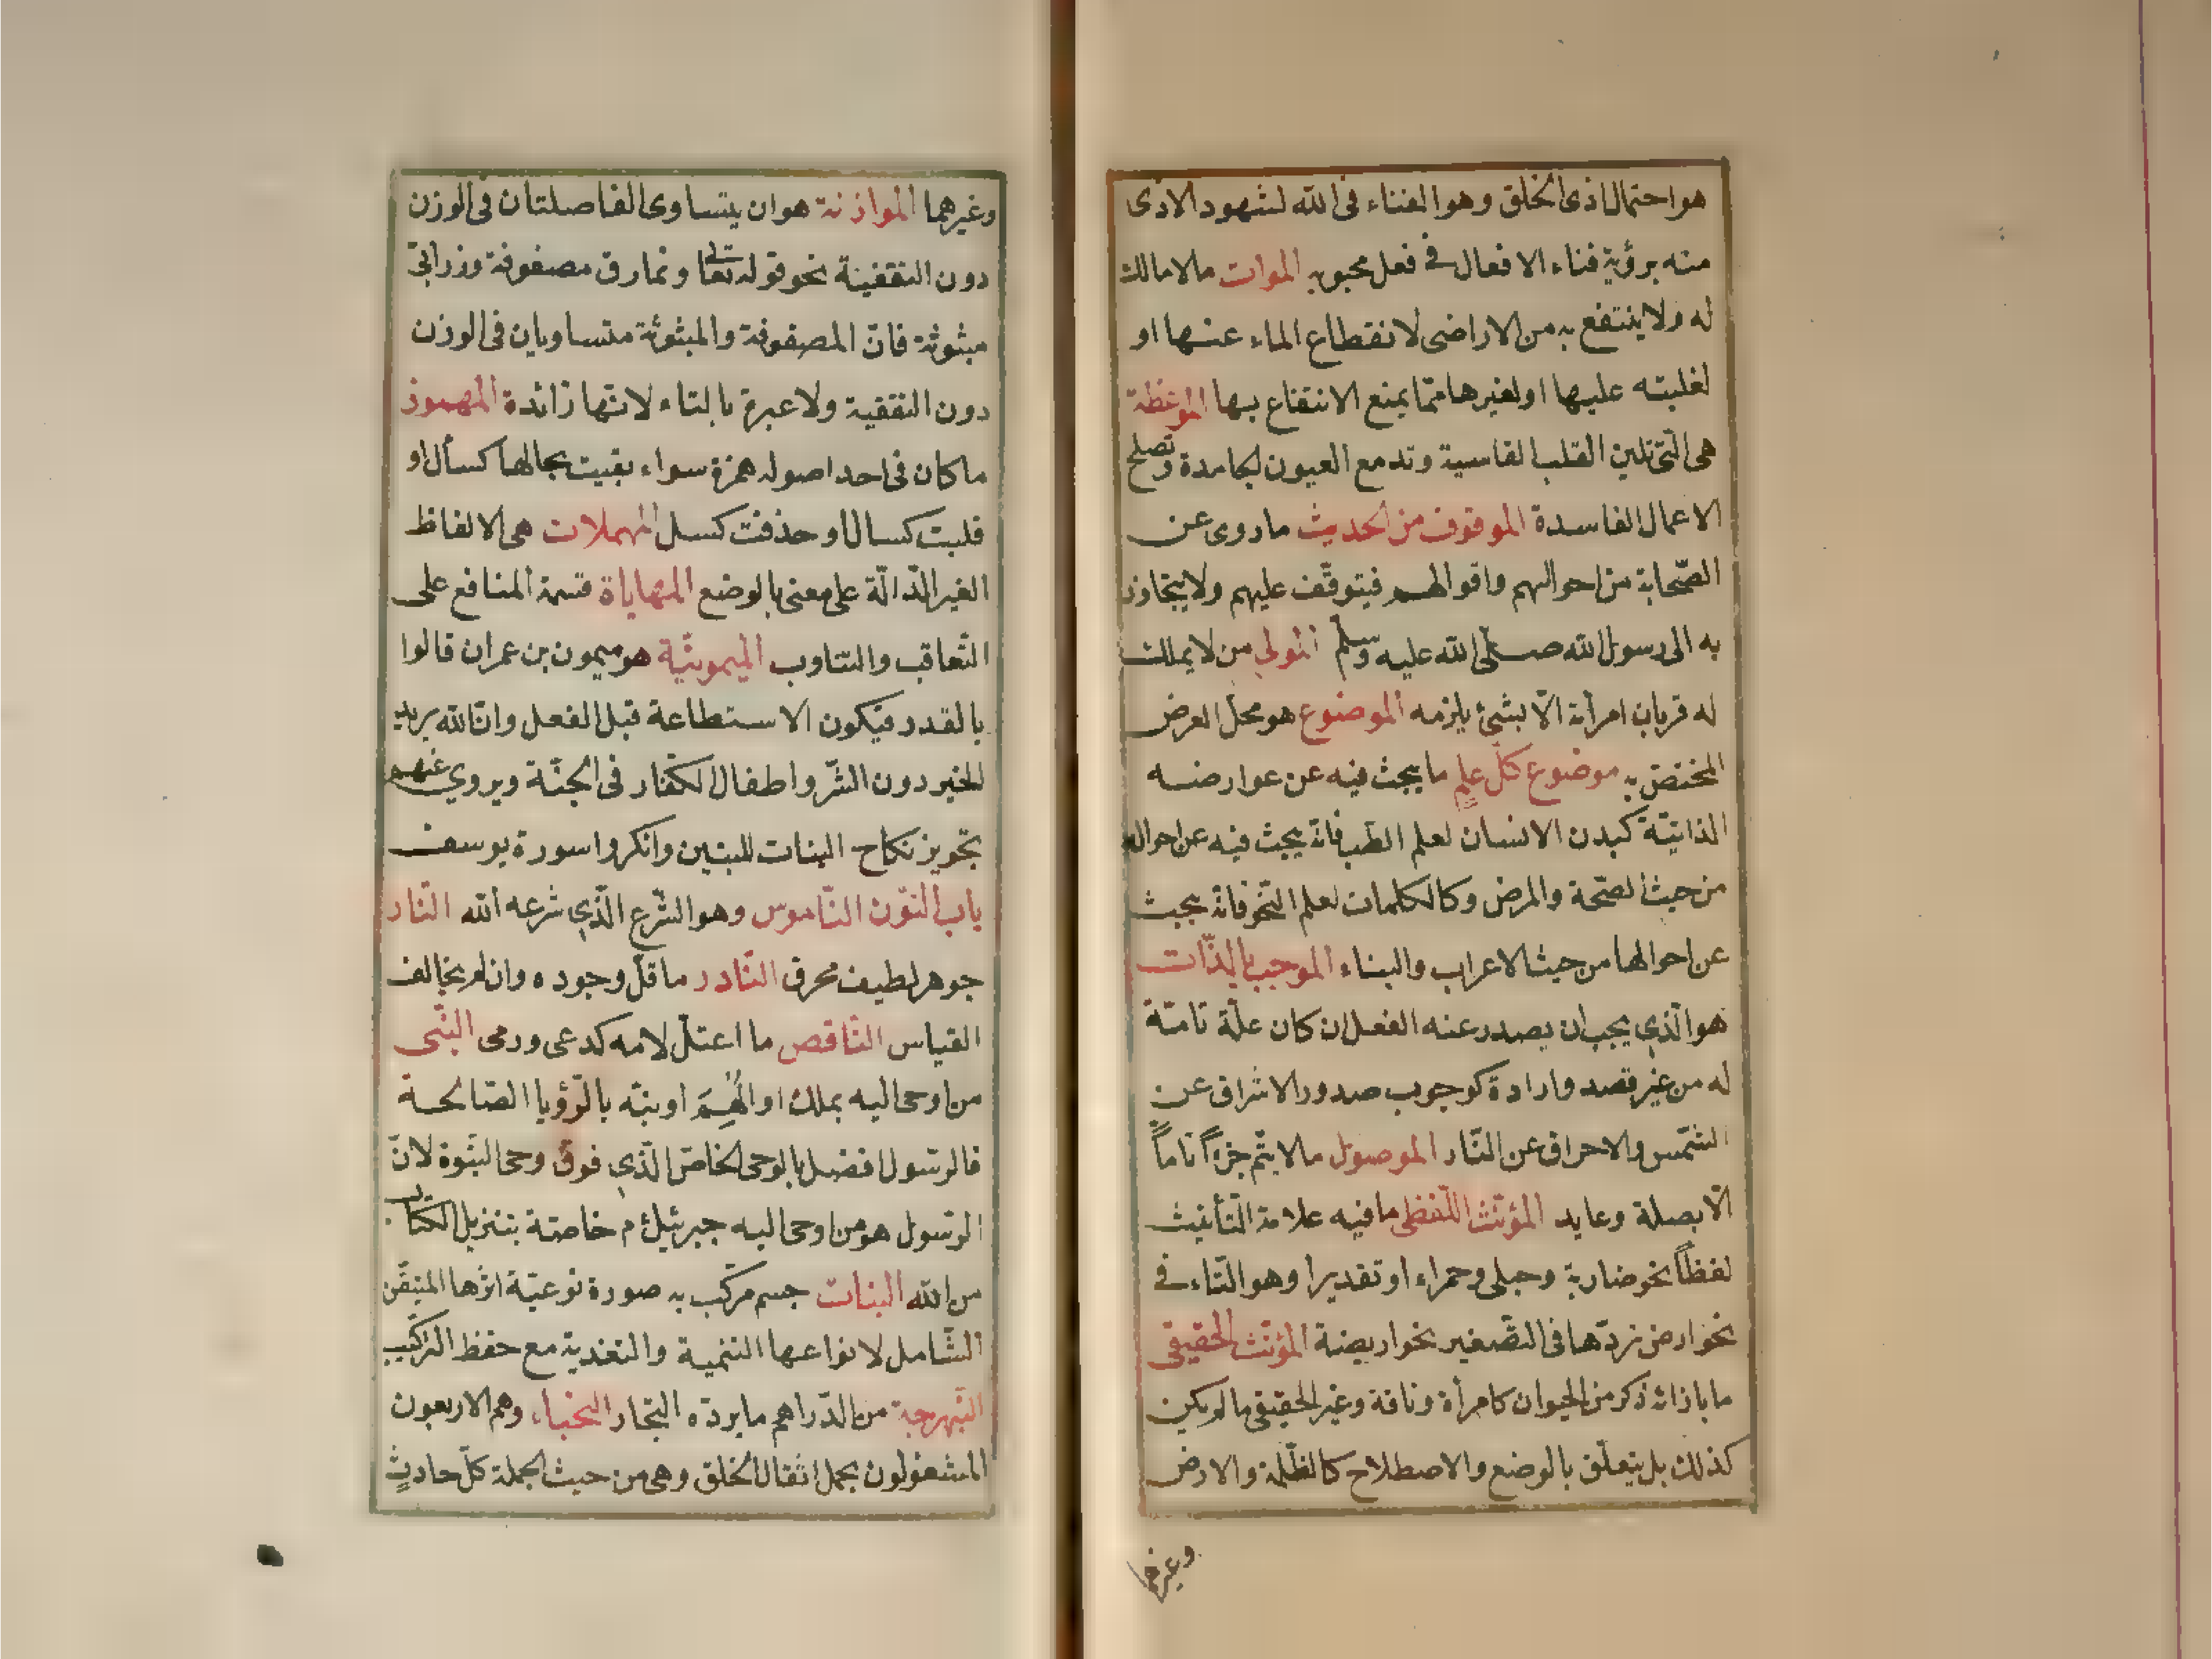 هو احتمال اذى الخلق وهو الفناء فى الله لشهود الاذى
منه برؤية فناء الافعال فى فعل محبوبه الموات مالا مالك
له ولا ينتفع به من الاراضى لانقطاع الماء عنها او
لغلبته عليها او لغيرها ممّا يمنع الانتفاع بها الموعظة
هى الّتى تلين القلب القاسية وتدمع العيون الجامدة وتصلح
الاعمال الفاسدة الموقوف من الحديث ما روى عن
الصّحابة من احوالهم واقوالهم فيتوقّف عليهم ولا يتجاوز
به الى رسول الله صلّى الله عليه وسلّم المولى من لا يملك
له قربان امرأته الّا بشئ يلزمه الموضوع هو محلّ العرض
المختصّ به موضوع كلّ علمٍ ما يبحث فيه عن عوارضه
الذاتيّة كبدن الانسان لعلم الطّب فانّه يبحث فيه عن احواله
من حيث الصّحة والمرض وكالكلمات لعلم النّحو فانّه يبحث
عن احوالها من حيث الاعراب والبناء الموجب بالذّات
هو الّذى يجب ان يصدر عنه الفعل ان كان علّة تامّة
له من غير قصد وارادة كوجوب صدور الاشراق عن
الشّمس والاحراق عن النّار الموصول مالا يتّم جزأً تاماً
الّا بصلة وعايد المؤنّث اللّفظى ما فيه علامة التّأنيث
لفظاً نحو ضاربة وحبلى وحمراء او تقديرا وهو التّاء فى
نحو ارض نردّها فى التّصغير نحو اريضة المؤنّث الحقيقى
ما بازائه ذكر من الحيوان كامرأة وناقة وغير الحقيقى ما لم يكن
كذلك بل يتعلّق بالوضع والاصطلاح كالظّلمة والارض
وغيرهما
وغيرهما الموازنة هو ان يتساوى الفاصلتان فى الوزن
دون التقفية نحو قوله تعالى ونمارق مصفوفة وزرابىّ
مبثوثة فانّ المصفوفة والمبثوثة متساويان فى الوزن
دون التقفية ولا عبرة بالتاء لانّها زائدة المهموز
ما كان فى احد اصوله همزة سواء بقيت بحالها كسأل او
قلبت كسال او حذفت كسل المهملات هى الالفاظ
الغير الدّالّة على معنى بالوضع المهاياة قسمة المنافع على
التّعاقب والتناوب الميمونيّة هو ميمون بن عمران قالوا
بالقدر فيكون الاستطاعة قبل الفعل وانّ الله يريد
الخير دون الشّر واطفال الكفّار فى الجنّة ويروي عنهم
تجويز نكاح البنات للبنين وانكروا سورة يوسف
باب النّون النّاموس وهو الشّرع الّذي شرعه الله النّار
جوهر لطيف محرق النّادر ما قلّ وجوده وان لم يخالف
القياس النّاقص ما اعتلّ لامه كدعى ورمى النّبى
من اوحى اليه بملك او الهم او نبّه بالرّؤيا الصّالحة
فالرّسول افضل بالوحى الخاصّ الّذي فوق وحى النّبوة لانّ
الرّسول هو من اوحى اليه جبرئيل م خاصّة بتنزيل الكتاب
من الله النبات جسم مركّب به صورة نوعيّة اثرها المتيقّن
الشّامل لانواعها التنمية والتغذية مع حفظ التركيب
النّبهرجة من الدّراهم ما يردّه التجار النّجباء وهم الاربعون
المشغولون بحمل اثقال الخلق وهى من حيث الجملة كلّ حادثٍ